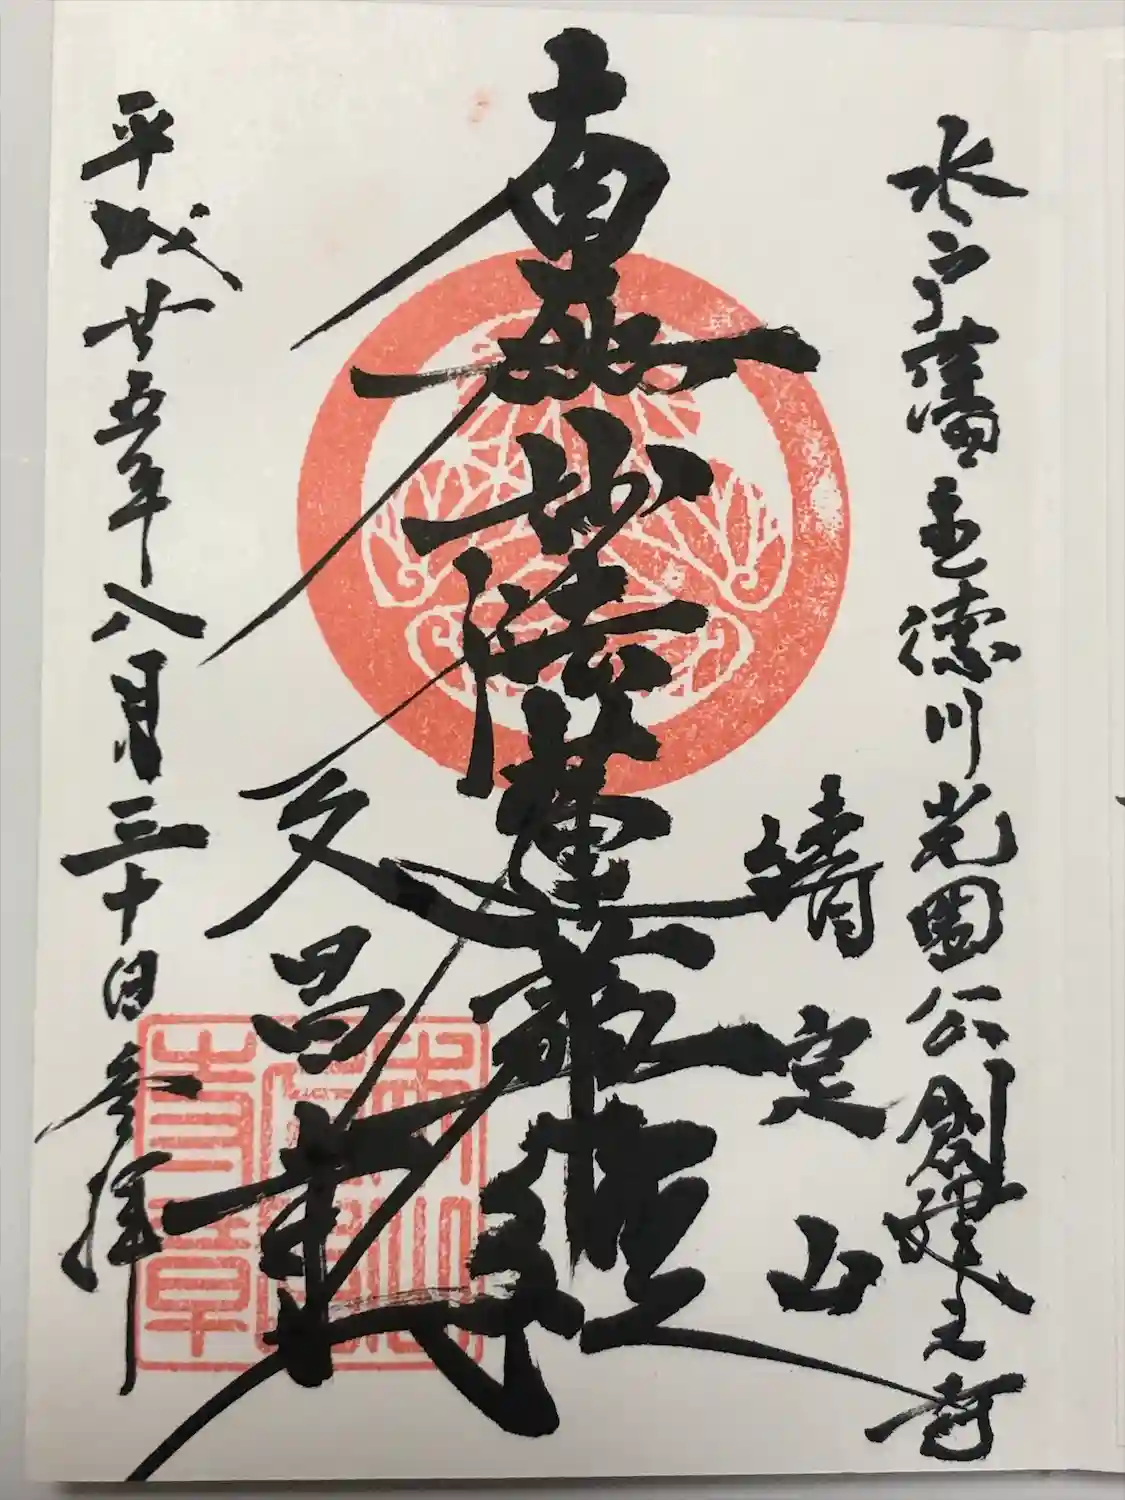 水戸藩主徳川光圀公創建之寺
靖定山
南無妙法蓮華經
久昌寺
平成廿五年八月三十日参拝